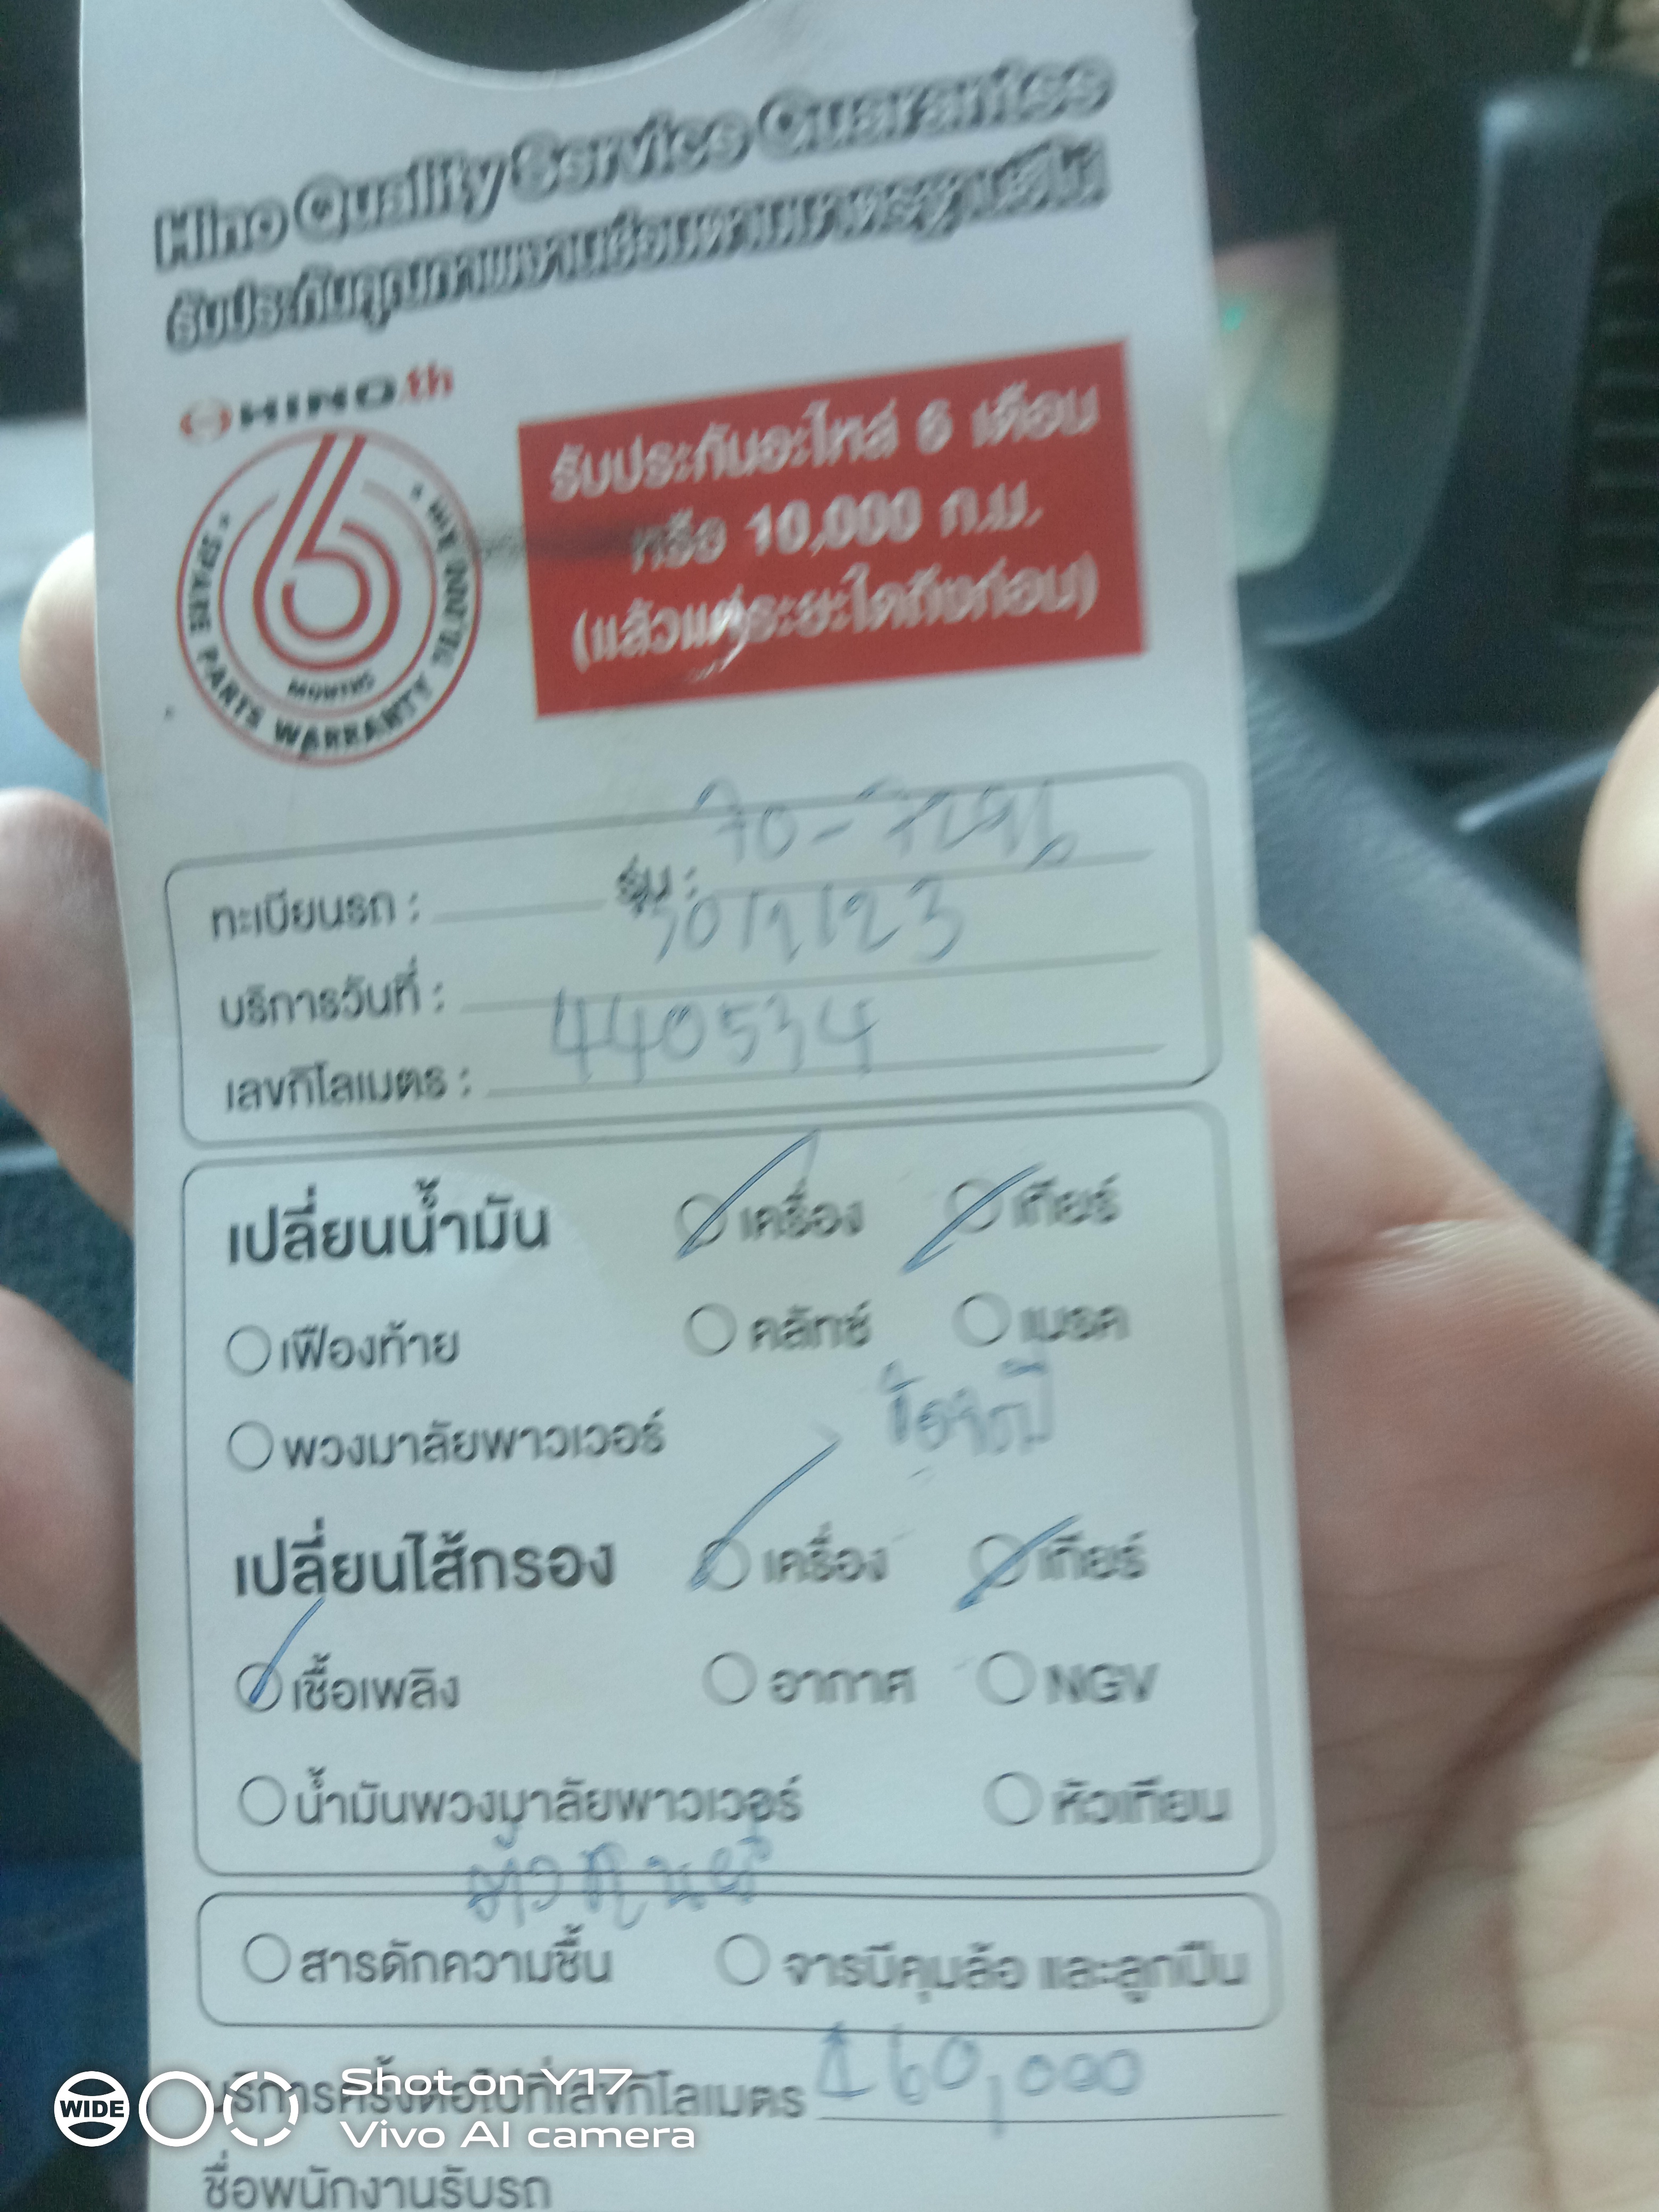 Hino Quality Service Guarantee
รับประกันคุณภาพงานซ่อมตามมาตรฐานฮีโน่
HINO.th
6
MONTHS
SPARE PARTS WARRANTY
รับประกันอะไหล่ 6 เดือน
หรือ 10,000 ก.ม.
(แล้วแต่ระยะใดถึงก่อน)
ทะเบียนรถ : รุ่น : 70-7296
บริการวันที่ : 30/1/23
เลขกิโลเมตร : 440534
เปลี่ยนน้ำมัน เครื่อง เกียร์
เฟืองท้าย คลัทช์ เบรค
พวงมาลัยพาวเวอร์
เปลี่ยนไส้กรอง เครื่อง เกียร์
เชื้อเพลิง อากาศ NGV
น้ำมันพวงมาลัยพาวเวอร์ หัวเทียน
สารดักความชื้น จารบีดุมล้อ และลูกปืน
บริการครั้งต่อไปที่เลขกิโลเมตร 460,000
ชื่อพนักงานรับรถ
WIDE
Shot on Y17
Vivo AI camera